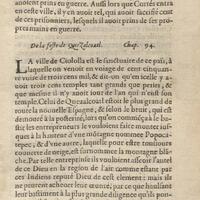 anoient prins en guerre. Aussi lors que Cortés entra
en ceste ville, il y en auoit tel, qui auoit sacrifié cent
de ces prisonniers, lesquels il auoit prins de ses pro-
pres mains en guerre.
De la feste de Quezalcoatl. Chap. 94.
LA ville de Ciolola est le sanctuaire de ce païs, à
laquelle on venoit en voiage de cent cinquan-
te voire de trois cens mil, & dit-on qu'en icelle y a-
uoit trois cens trente quatre temples que grans, pe-
& que mesme il n'y auoit iour de l'an qui n'eust son
temple. Celui de Quezalcoatl estoit le plus grand de
toute la nouuelle Espagne, & selon le bruit, que ont
demeuré à la posterité, lors qu'on commença à le ba-
stir les entrepreneurs le vouloient faire monter ius-
ques à hauteur d'une montagne nommee Popoca-
tepec, & d'vne autre, laquelle pour estre tousiours
couuerte de neige, est surnommee la montagne blan-
che. Par telle entreprise ils vouloient asseoir l'autel
de ce Dieu en la region de l'air comme estant par
ces Indiens reputé Dieu de cest element: mais ils
ne peurent acheuer leur oeuure, par ce que haussant
leur bastiment à la plus grande diligence qu'ils pou-